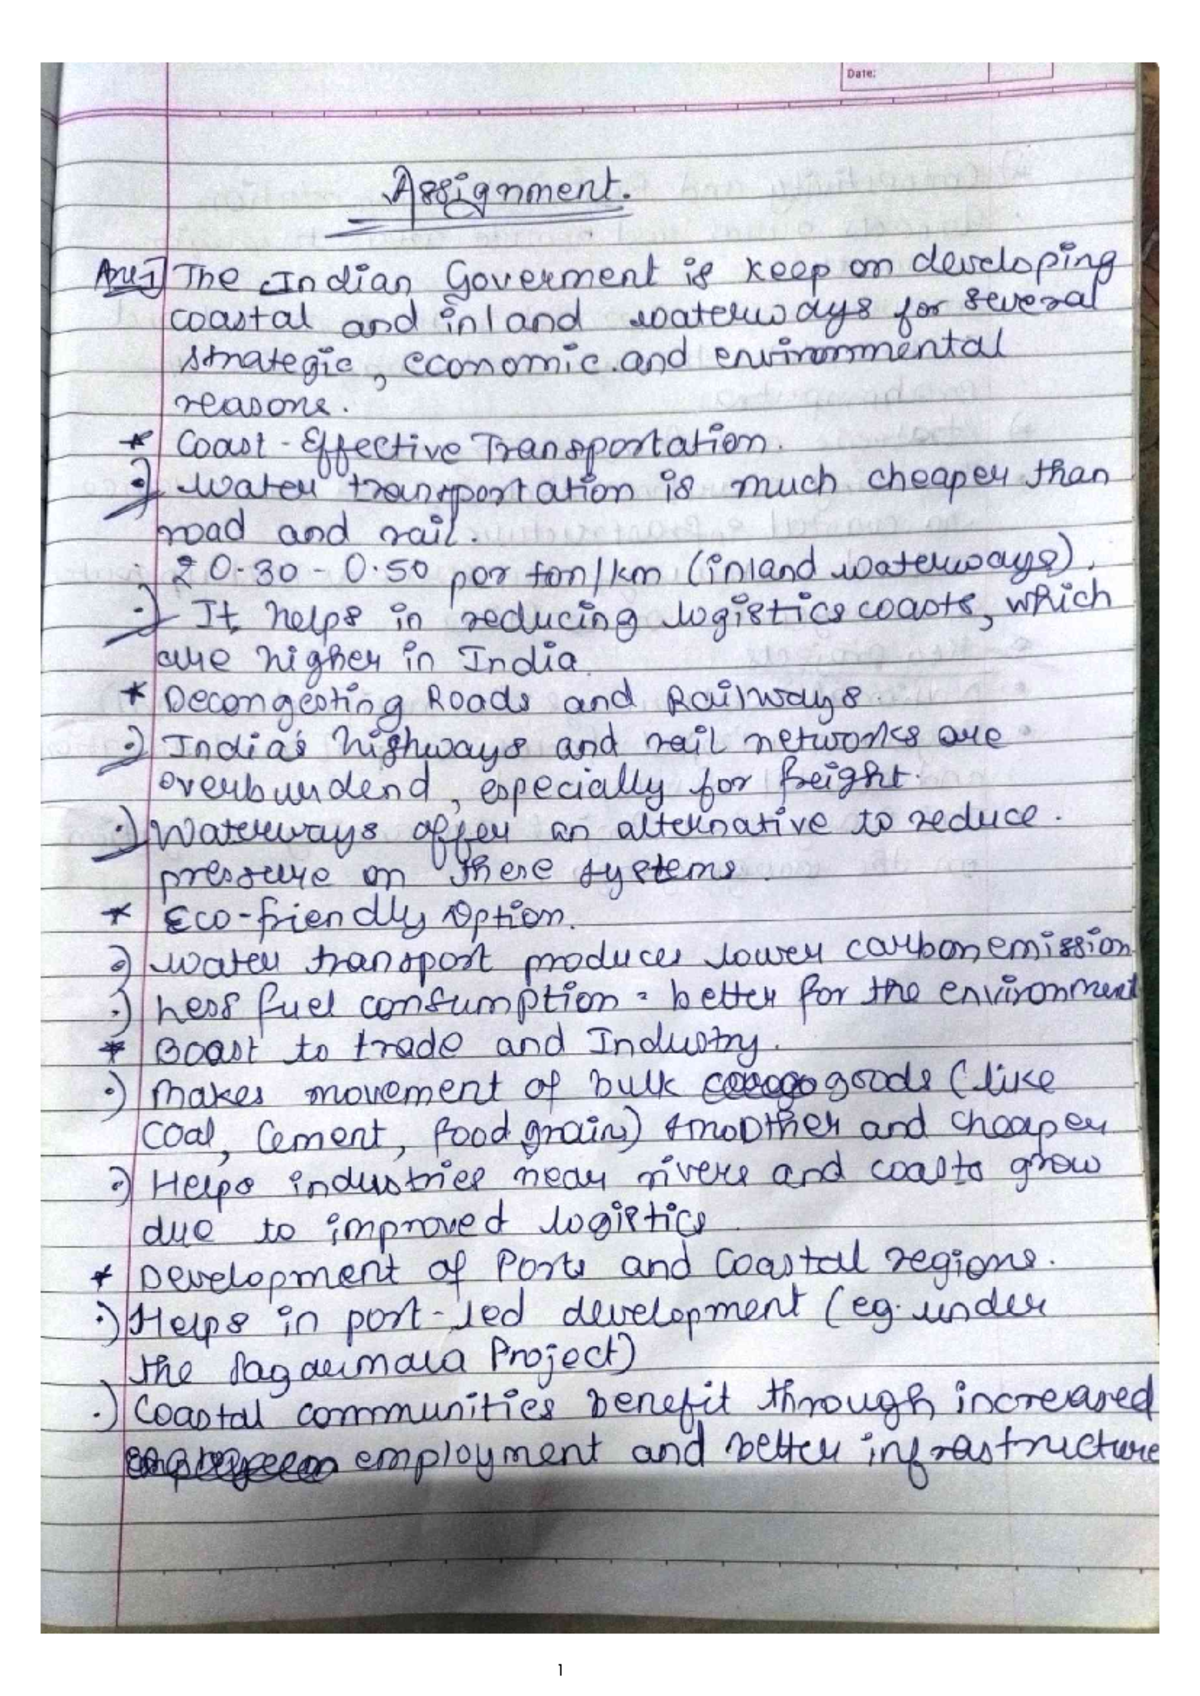 Date:
Assignment.
Ans1] The Indian Goverment is keep on developing
coastal and inland waterways for several
strategic, economic.and environmental
reasons.
* Coast-Effective Transportation.
•) water transportation is much cheaper than
road and rail.
₹ 0.30 - 0.50 per ton/km (inland waterways).
•) It helps in reducing logistics coasts, which
are higher in India
* Decongesting Roads and Railways.
•) India's highways and rail networks are
overburdend, especially for freight.
•) Waterways offer an alternative to reduce.
pressure on these systems.
* Eco-friendly Option.
•) water transport produces lower carbon emission.
•) Less fuel consumption = better for the environment
* Boast to trade and Industry.
•) Makes movement of bulk goods (like
coal, Cement, food grains) smoother and cheaper
•) Helps industries near rivers and coasts grow
due to improved logistics
* Development of Ports and Coastal regions.
•) Helps in port-led development (eg. under
the Sagarmala Project)
•) Coastal communities benefit through increased
employment and better infrastructure
1